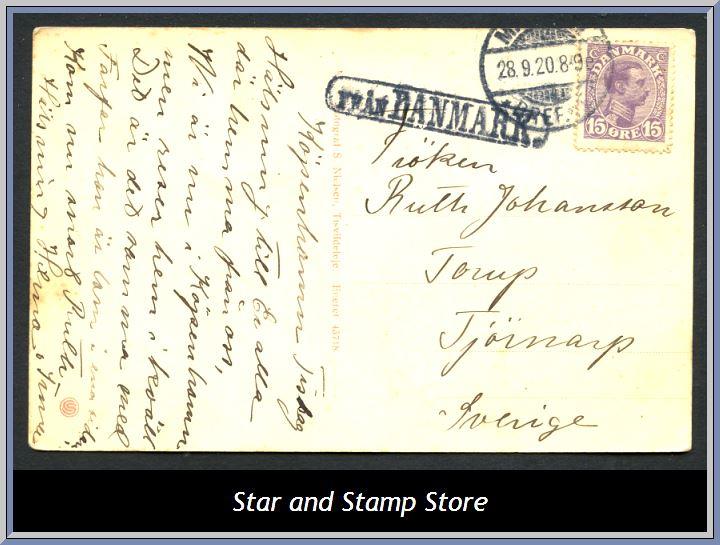 Köpenhamn Tisdag
Hälsning till Er alla
där hemma från oss,
Vi är nu i Köpenhamn
men reser hem i kväll
Det är det samma med
Farfar han är lam i ena sidan
Kom nu snart Ruth!
Hälsning
S. Nielsen, Tisvildeleje. Eneret 45738
FRÅN DANMARK
28.9.20.8-9
DANMARK
15 ØRE 15
Fröken
Ruth Johansson
Torup
Tjörnarp
Sverige
Star and Stamp Store